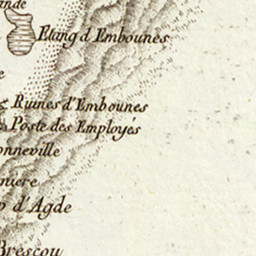 Etang d'Embounes
Ruines d'Embounes
Poste des Employés
onneville
niere
d'Agde
Brescou